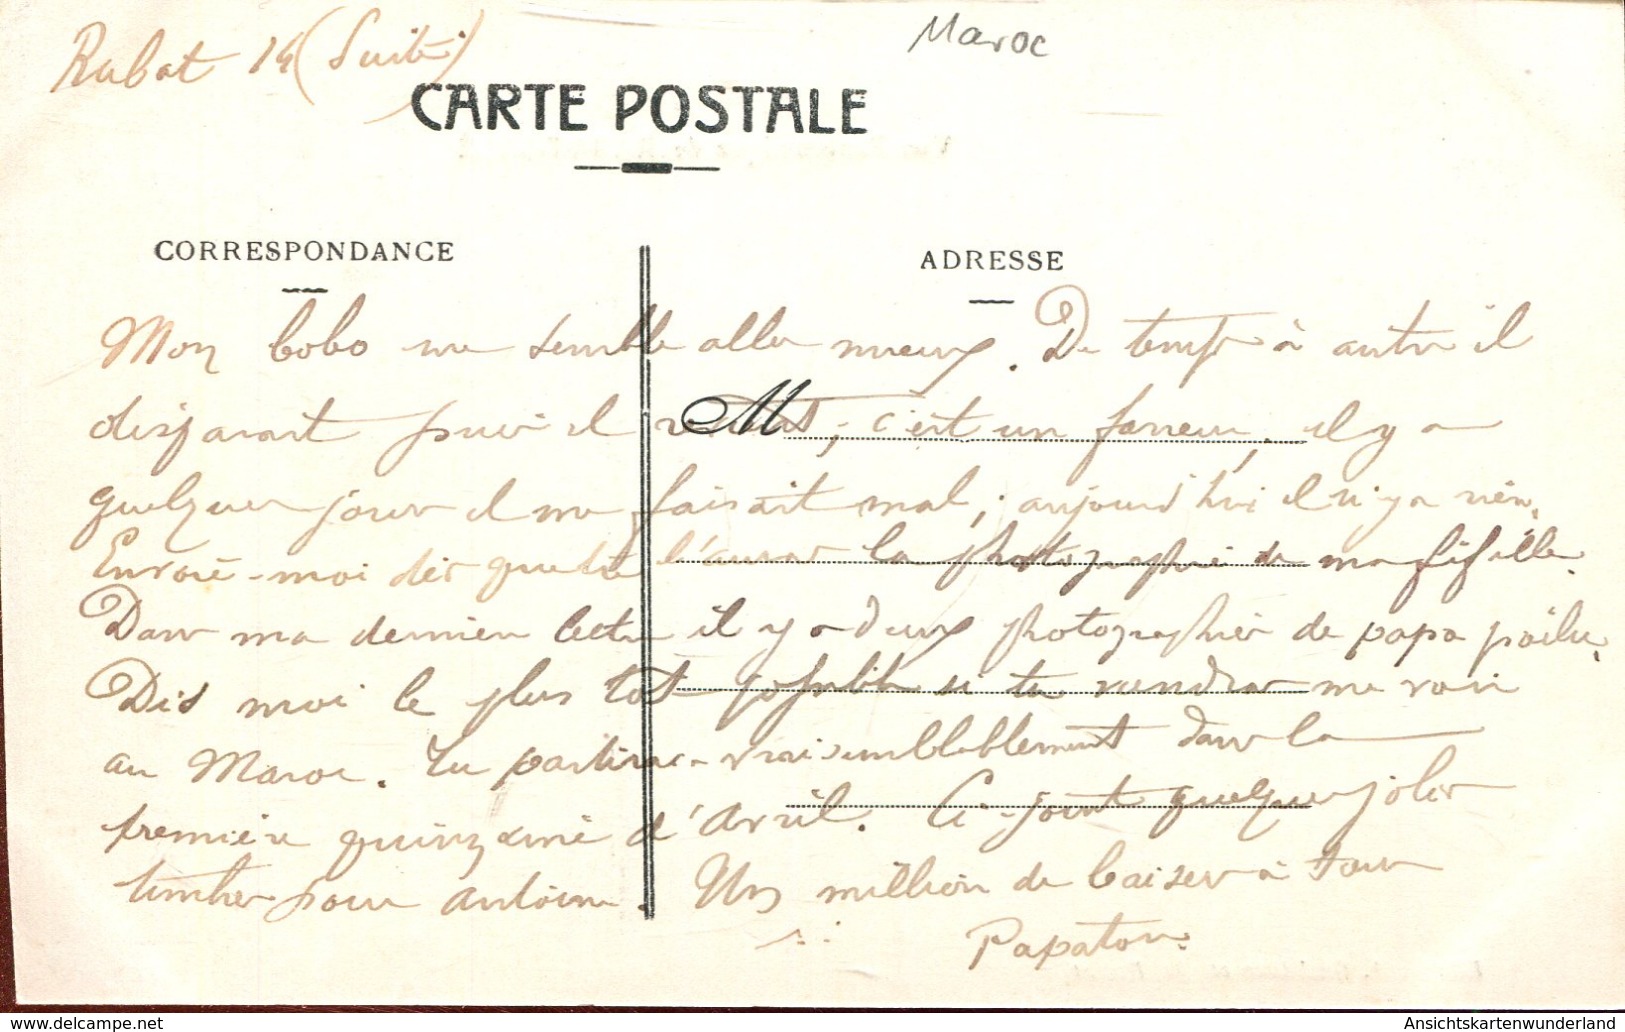 Rabat 14 (Suite)
Maroc
CARTE POSTALE
CORRESPONDANCE
ADRESSE
M
Mon bobo me semble aller mieux. De temps à autre il
disparait puis il revient ; c'est un farceur, il y a
quelques jours il me faisait mal ; aujourd'hui il n'y a rien.
Envoie-moi dès que tu l'auras la photographie de ma fifille.
Dans ma dernière lettre il y a deux photographies de papa poilu.
Dis moi le plus tôt possible si tu viendras me voir
au Maroc. Tu partiras vraisemblablement dans la
première quinzaine d'Avril. Ci-joint quelques jolis
timbres pour Antoine. Un million de baisers à tous
Papaton.
AnsichtskartenWunderland
www.delcampe.net